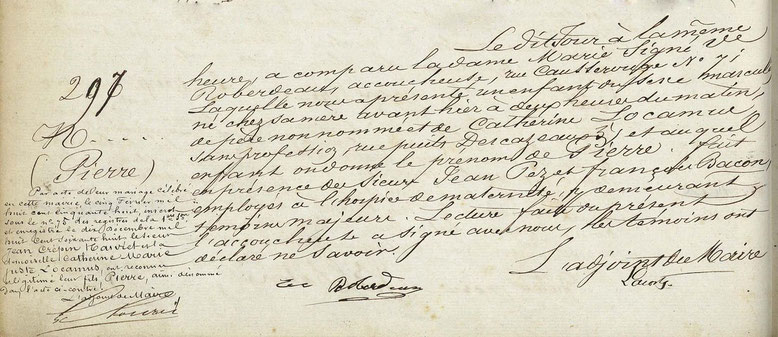 297
N.....
(Pierre)
Par acte de leur mariage célébré
en cette mairie, le cinq Février mil
huit cent cinquante huit, inscrit
sous le n° 75 des registres de la 1ère
et enregistré le dix Décembre mil
huit cent soixante huit, le sieur
Jean Crépin Mauret et la
demoiselle Catherine Marie
Locamus, ont reconnu
et légitimé leur fils, Pierre, ainsi dénommé
dans l'acte ci-contre.
L'adjoint du Maire
Le dit Jour à la même
heure, a comparu la dame Marie Signé Ve
Roberdeau, accoucheuse, rue Causserouge N° 71
Laquelle nous a présenté un enfant du Sexe masculin
né chez sa mère avant hier à deux heures du matin,
de père non nommé et de Catherine Locamus
Sans profession, rue puits Descazeaux 31, et auquel
enfant on donne le prénom de Pierre. Fait
en présence des Sieurs Jean Pez et françois Dacon,
employés à l'hospice de maternité, y demeurant
témoins majeurs. Lecture faite du présent
l'accoucheuse a signé avec nous, les témoins ont
déclaré ne savoir.
L'adjoint du Maire